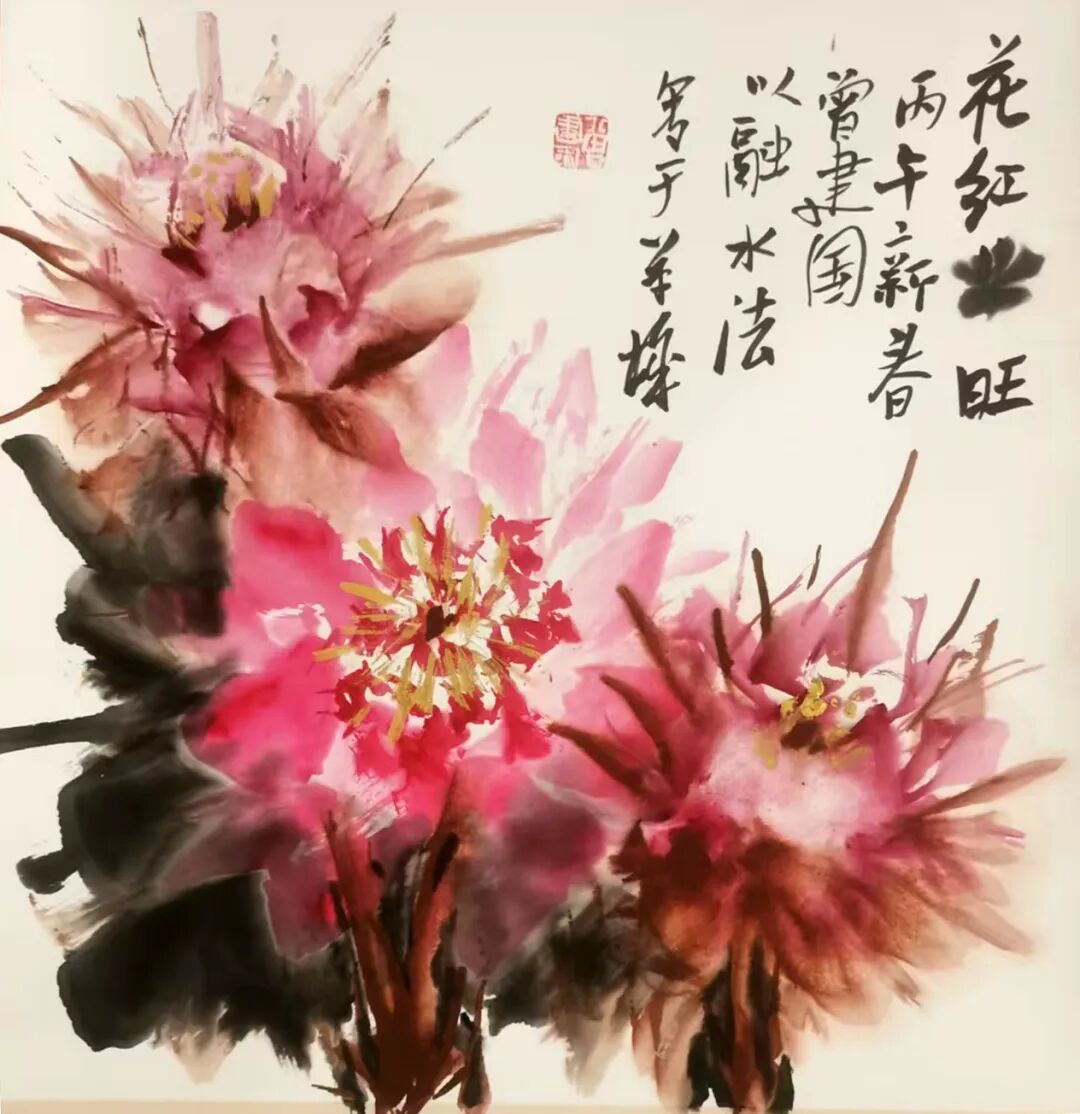 花红业旺
丙午新春
曾建国
以融水法
写于羊城